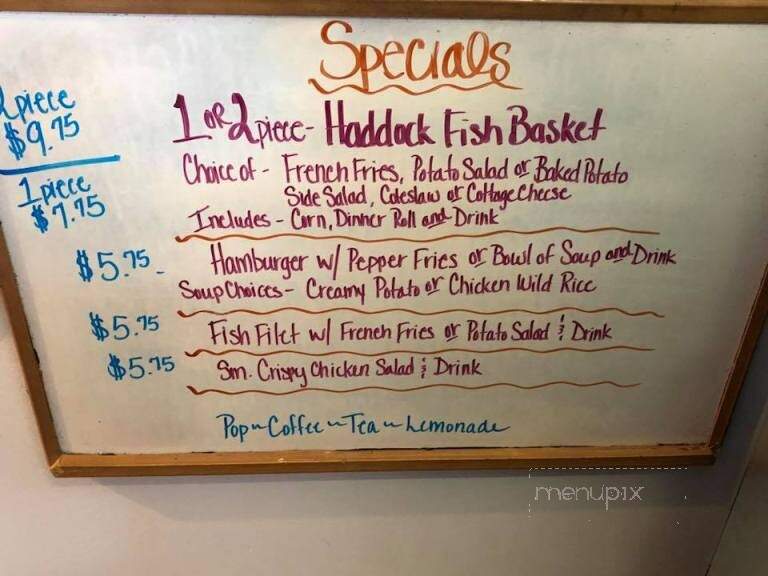 Specials
2 piece
$9.75
1 piece
$7.75
1 or 2 piece - Haddock Fish Basket
Choice of - French Fries, Potato Salad or Baked Potato
Side Salad, Coleslaw or Cottage Cheese
Includes - Corn, Dinner Roll and Drink
$5.75 - Hamburger w/ Pepper Fries or Bowl of Soup and Drink
Soup Choices - Creamy Potato or Chicken Wild Rice
$5.75 Fish Filet w/ French Fries or Potato Salad & Drink
$5.75 Sm. Crispy Chicken Salad & Drink
Pop ~ Coffee ~ Tea ~ Lemonade
menupix